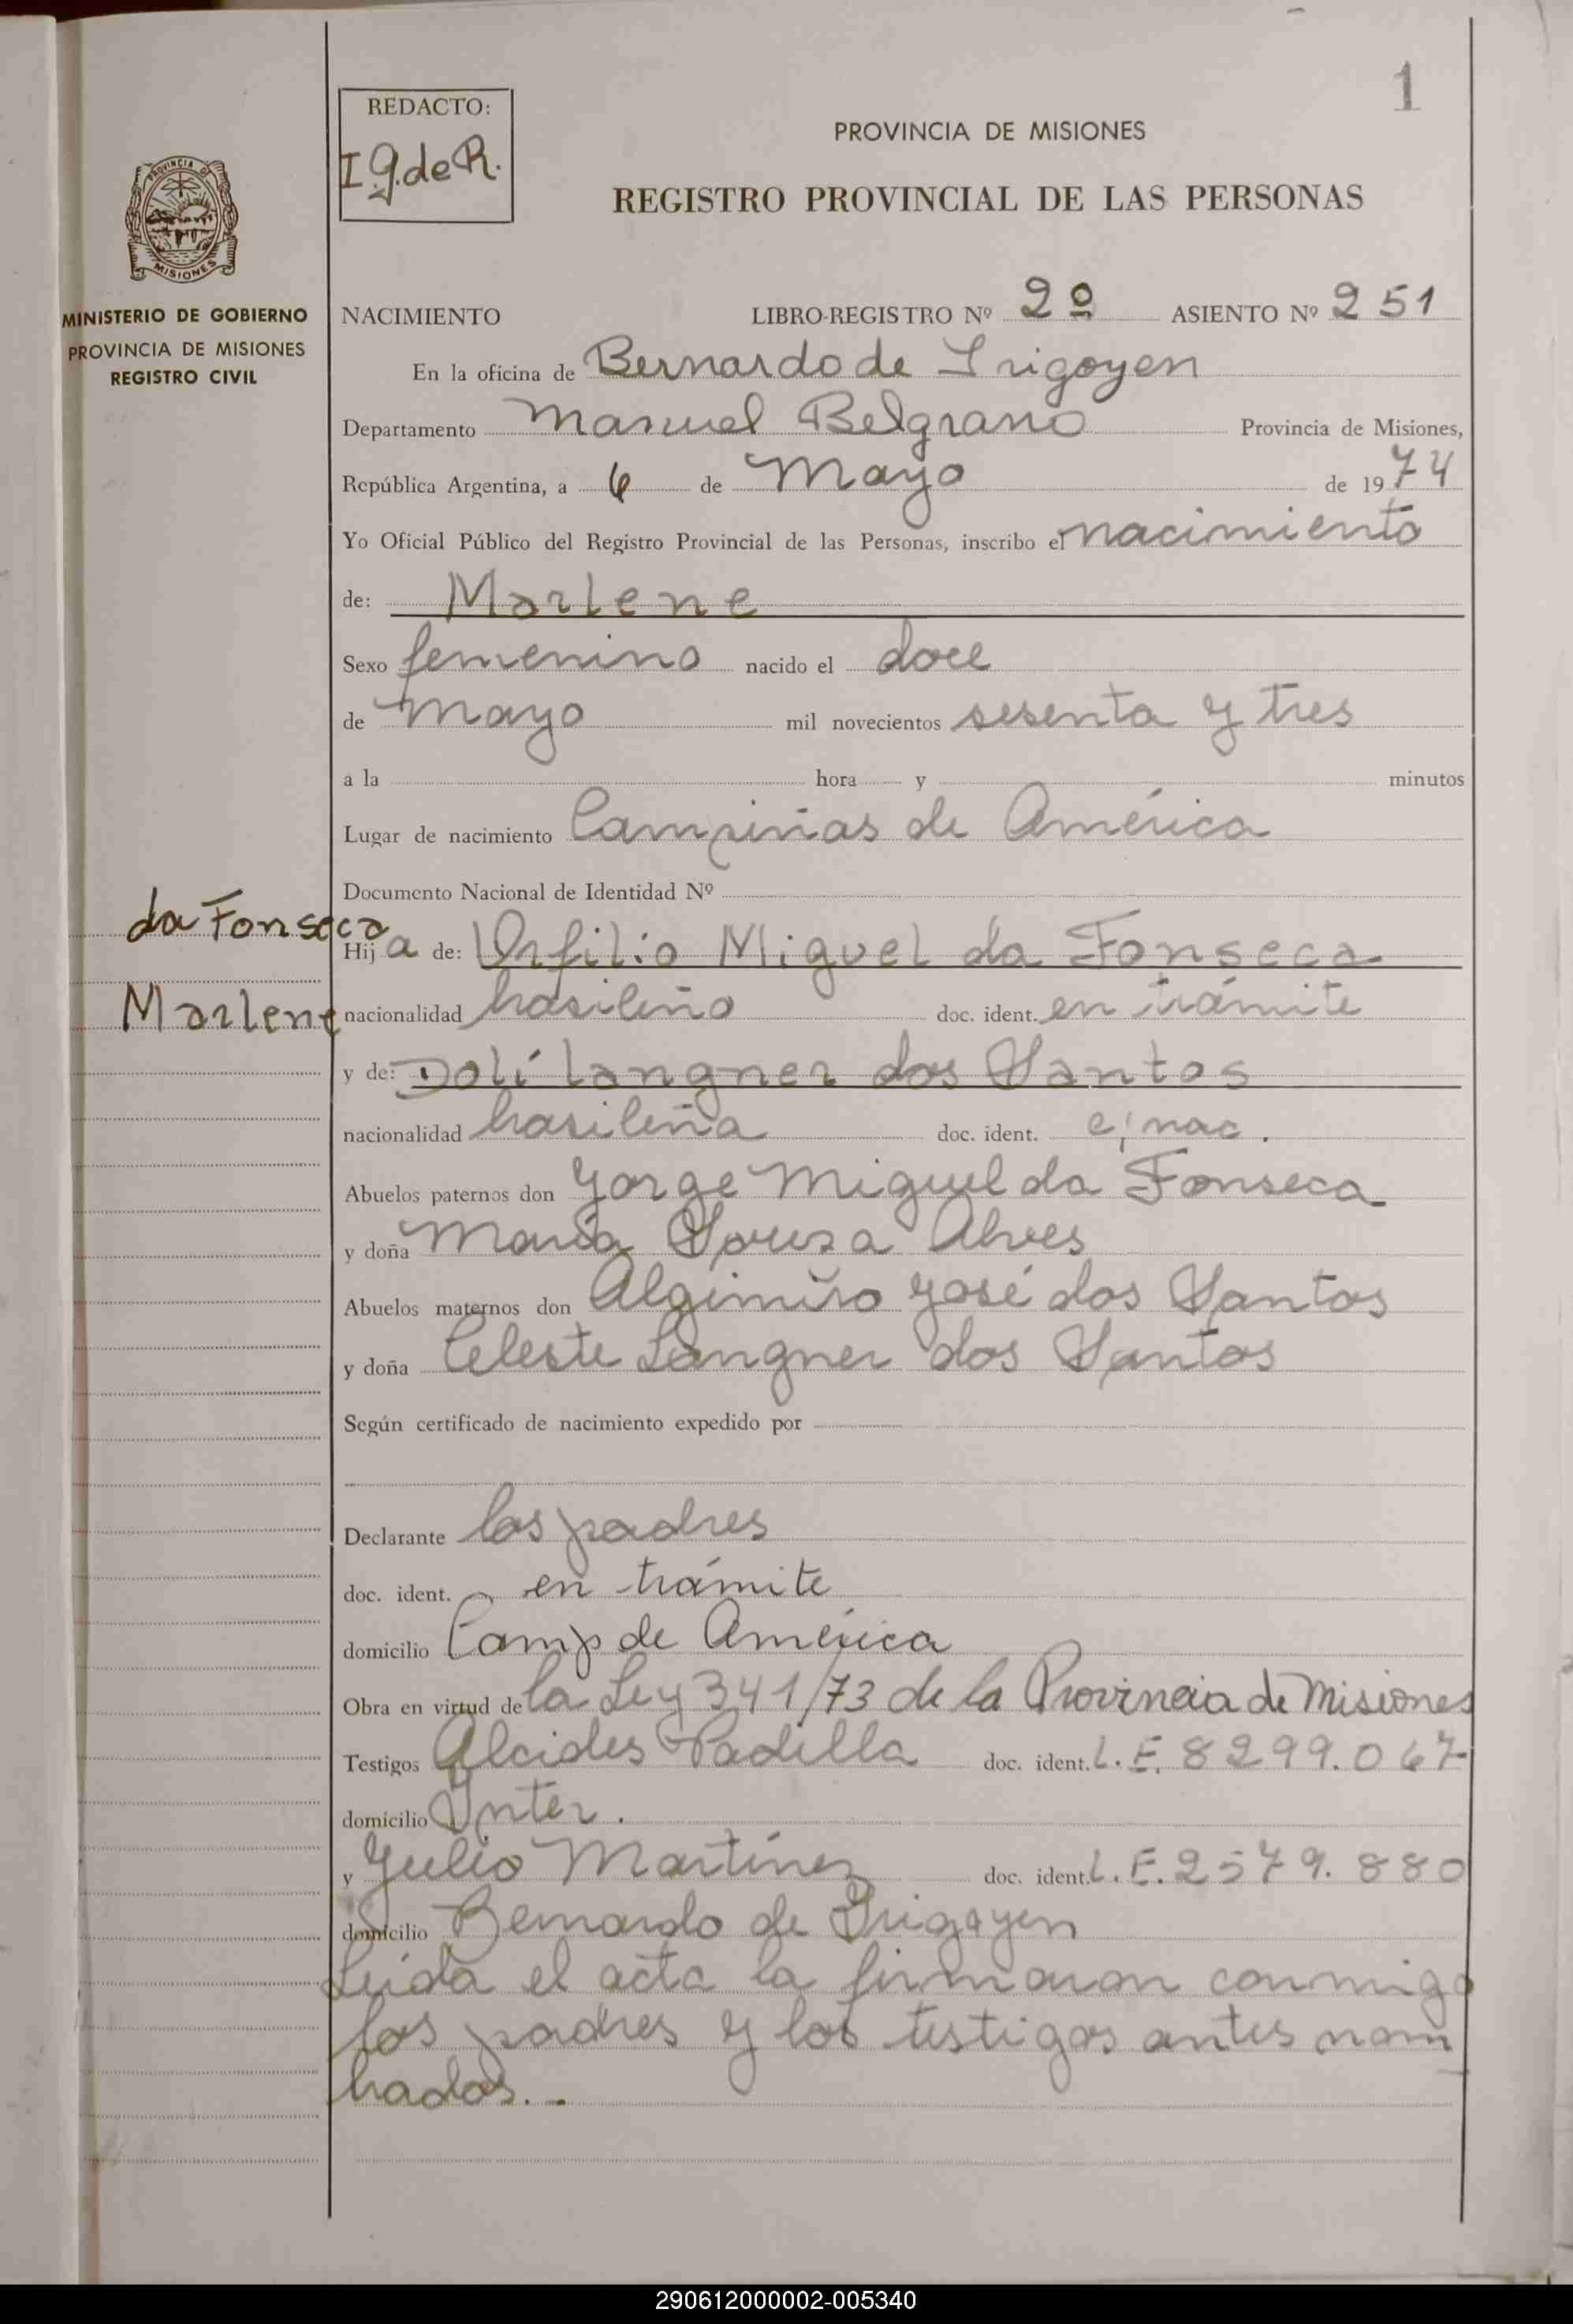 1
REDACTO:
I.g.de R.
PROVINCIA DE MISIONES
REGISTRO PROVINCIAL DE LAS PERSONAS
PROVINCIA DE
MISIONES
MINISTERIO DE GOBIERNO
PROVINCIA DE MISIONES
REGISTRO CIVIL
NACIMIENTO LIBRO-REGISTRO Nº 2º ASIENTO Nº 251
En la oficina de Bernardo de Irigoyen
Departamento Manuel Belgrano Provincia de Misiones,
República Argentina, a 6 de Mayo de 1974
Yo Oficial Público del Registro Provincial de las Personas, inscribo el nacimiento
de: Marlene
Sexo femenino nacido el doce
de Mayo mil novecientos sesenta y tres
a la hora y minutos
Lugar de nacimiento Campiñas de América
Documento Nacional de Identidad Nº
da Fonseca
Hija de: Orfilio Miguel da Fonseca
Marlene
nacionalidad brasileño doc. ident. en trámite
y de: Dolí Langner dos Santos
nacionalidad brasileña doc. ident. e/ nac.
Abuelos paternos don Jorge Miguel da Fonseca
y doña María Souza Alves
Abuelos maternos don Algimiro José dos Santos
y doña Celeste Langner dos Santos
Según certificado de nacimiento expedido por
Declarante los padres
doc. ident. en trámite
domicilio Camp de América
Obra en virtud de la Ley 341/73 de la Provincia de Misiones
Testigos Alcides Padilla doc. ident. L.E. 8299.067
domicilio Inter.
y Julio Martínez doc. ident. L.E. 2579.880
domicilio Bernardo de Irigoyen
Leida el acta la firmaron conmigo
los padres y los testigos antes nom
brados..
290612000002-005340